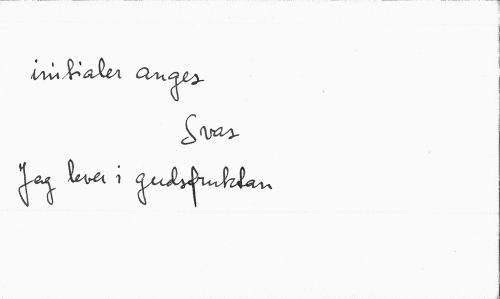 initialer anges
Svas
Jag lever i gudsfruktan